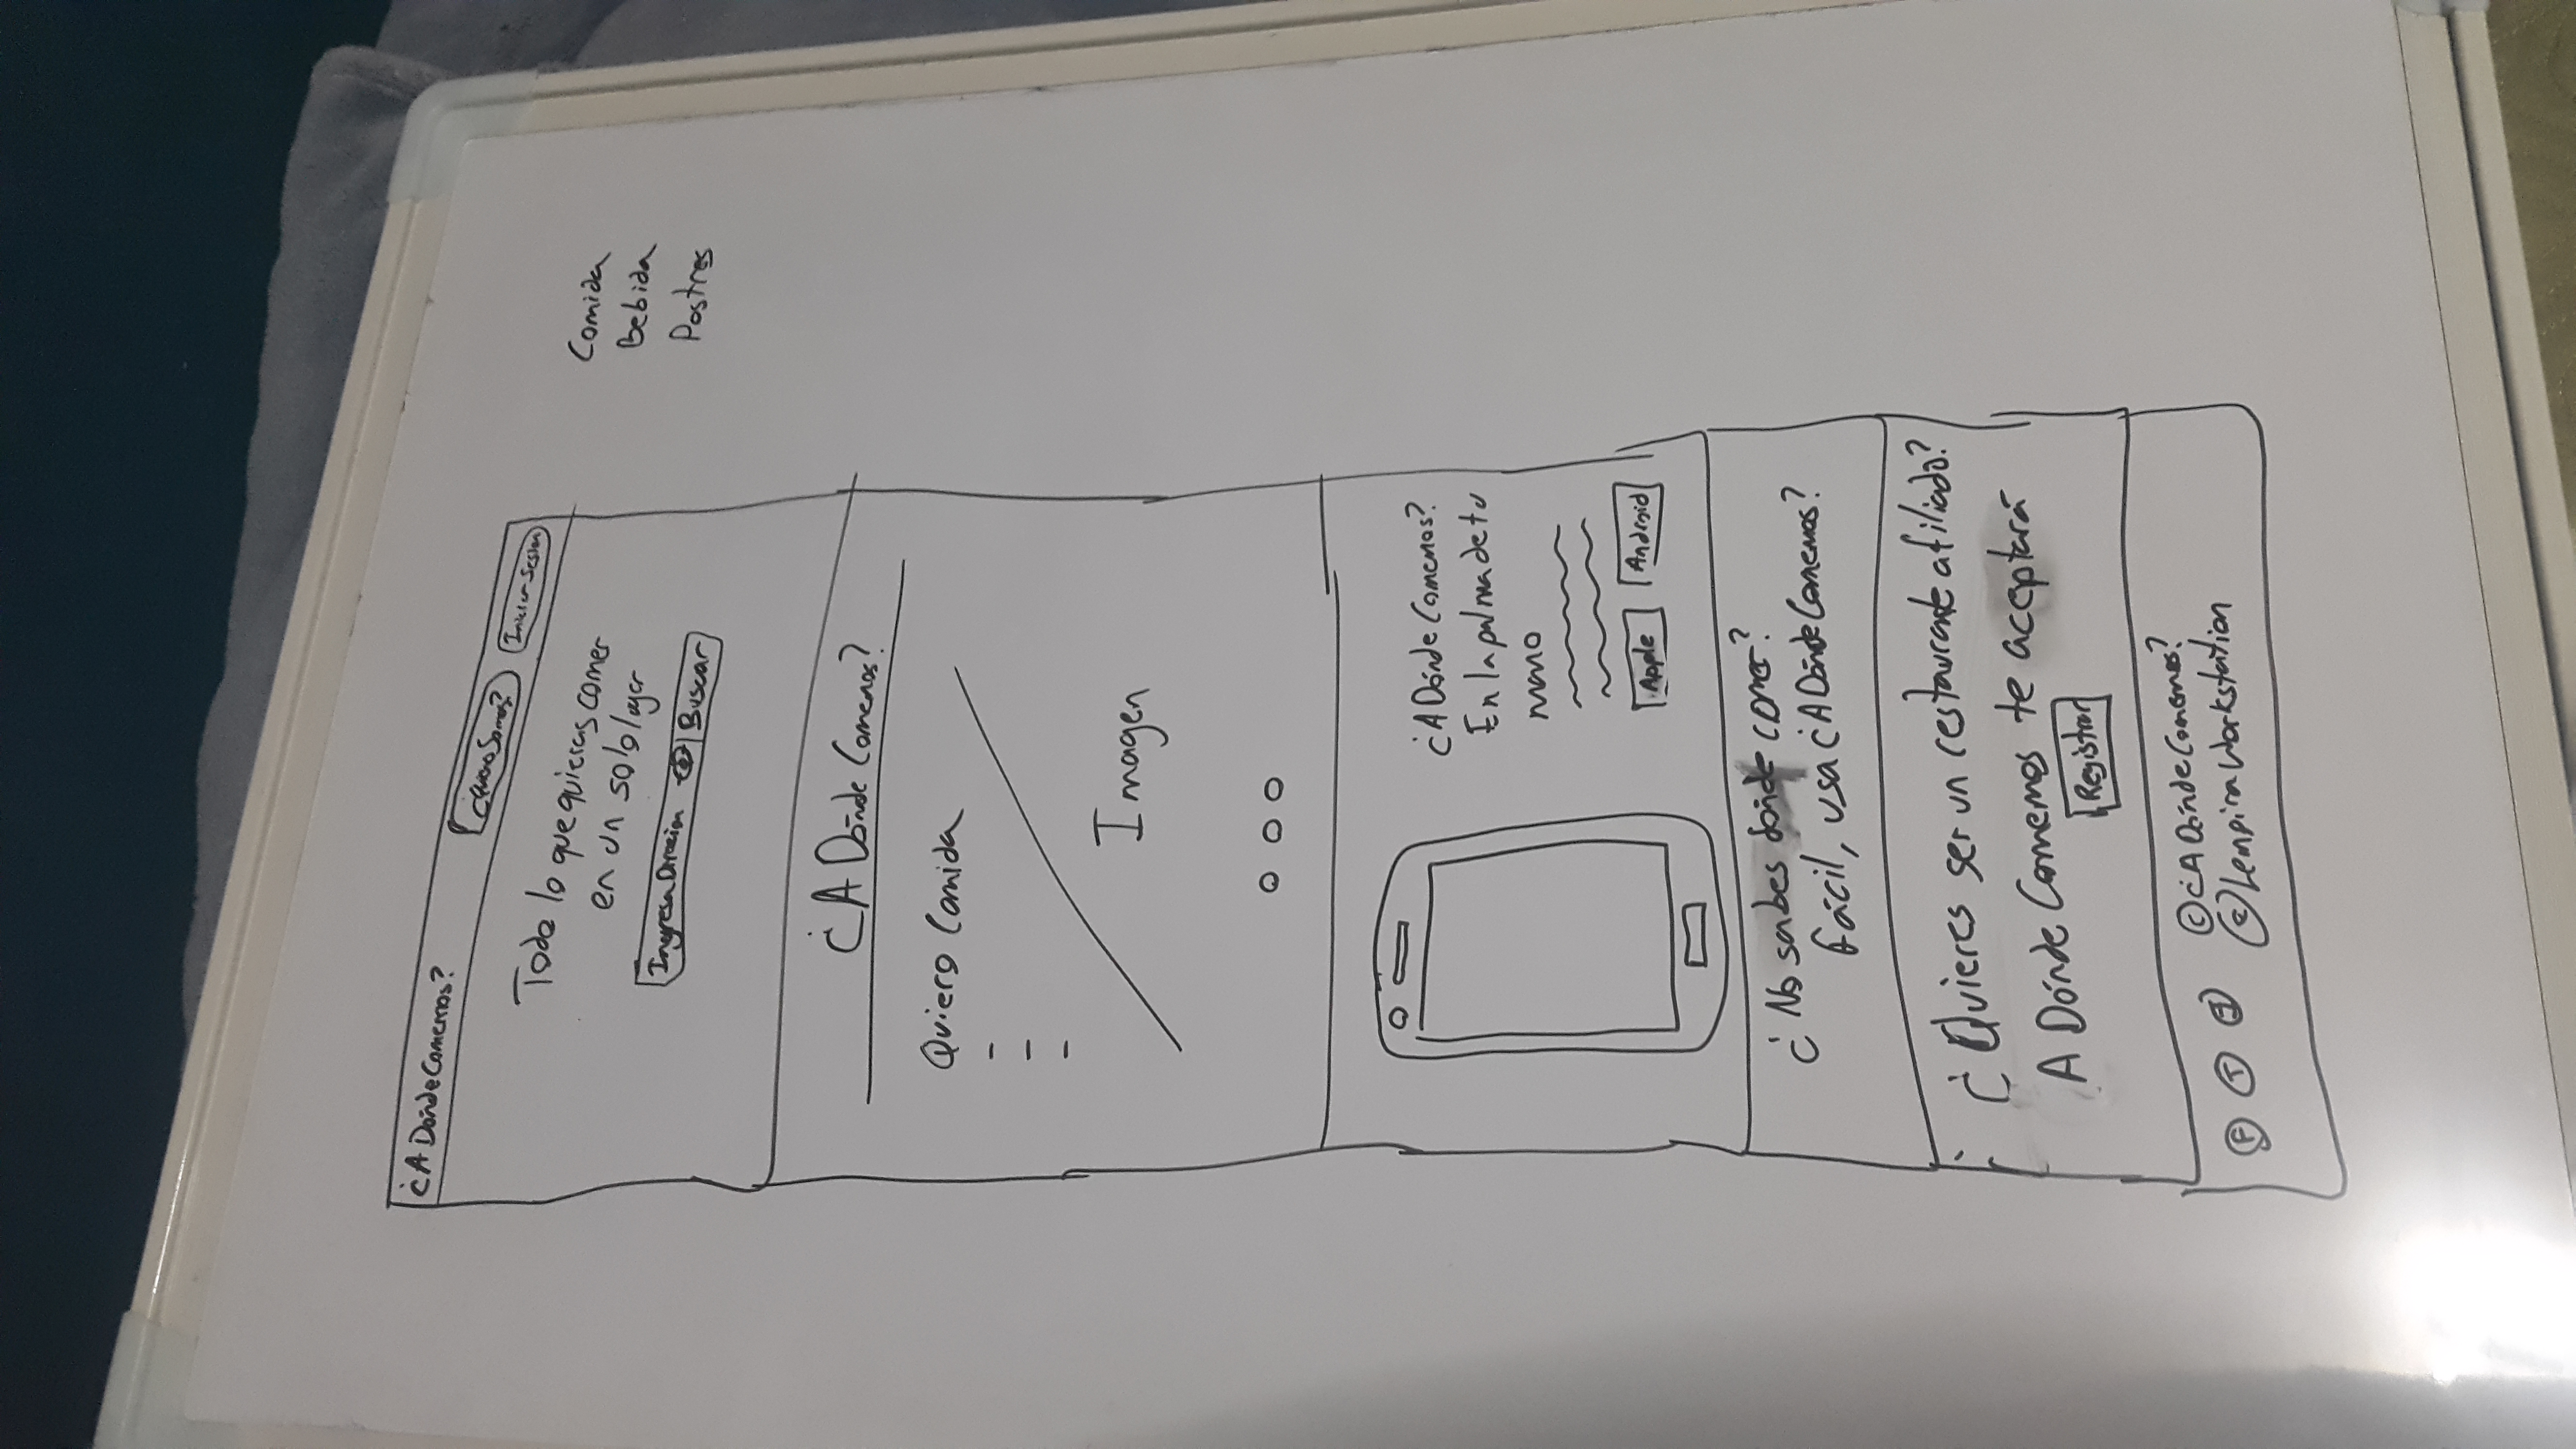 ¿A DóndeComemos?
¿Quienes Somos?
Iniciar Sesion
Todo lo que quieras comer
en un solo lugar
Ingresa Direccion
Buscar
Comida
Bebida
Postres
¿A Dónde Comemos?
Quiero Comida
Imagen
¿A Dónde Comemos?
En la palma de tu
mano
Apple
Android
¿No sabes donde comer?
fácil, usa ¿A Dónde Comemos?
¿Quieres ser un restaurante afiliado?
A Dónde Comemos te aceptará
Registrar
F T
© ¿A Dónde Comemos?
© Lempira Workstation